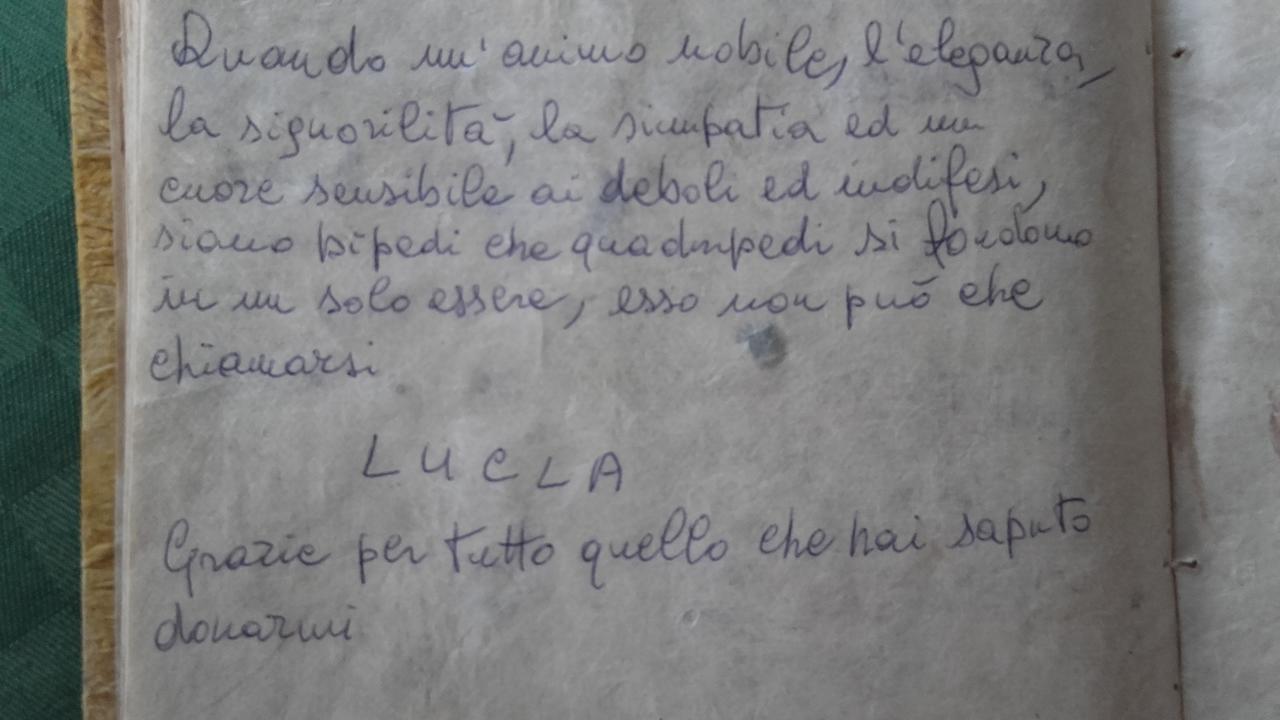 Quando un'animo nobile, l'eleganza,
la signorilità, la simpatia ed un
cuore sensibile ai deboli ed indifesi,
siano bipedi che quadrupedi si fondono
in un solo essere, esso non può che
chiamarsi
LUCLA
Grazie per tutto quello che hai saputo
donarmi